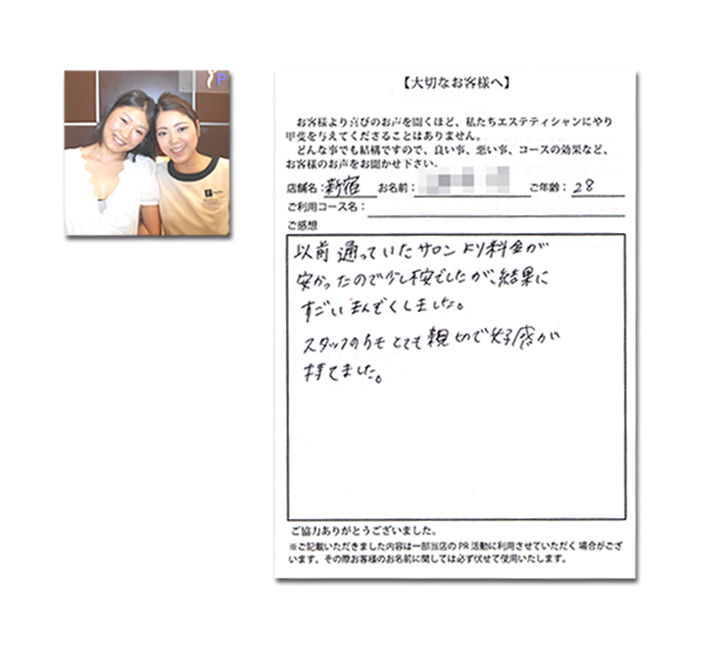 P
【大切なお客様へ】
お客様より喜びのお声を聞くほど、私たちエステティシャンにやり
甲斐を与えてくださることはありません。
どんな事でも結構ですので、良い事、悪い事、コースの効果など、
お客様のお声をお聞かせ下さい。
店舗名：新宿 お名前： ご年齢：28
ご利用コース名：
ご感想
以前通っていたサロンより料金が
安かったので少し不安でしたが、結果に
すごいまんぞくしました。
スタッフの方もとても親切で好感が
持てました。
ご協力ありがとうございました。
※ご記載いただきました内容は一部当店のPR活動に利用させていただく場合がござ
います。その際お客様のお名前に関しては必ず伏せて使用いたします。